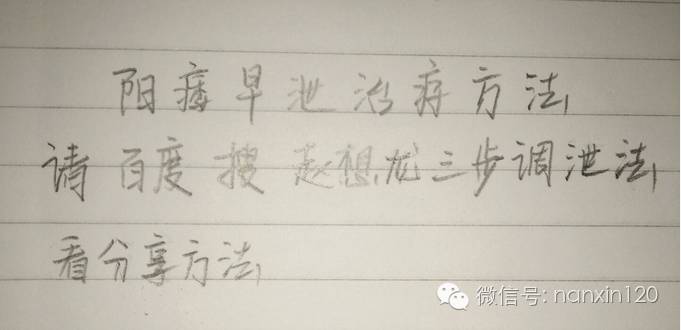 阳痿早泄治疗方法
请百度搜赵想龙三步调泄法
看分享方法
微信号: nanxin120